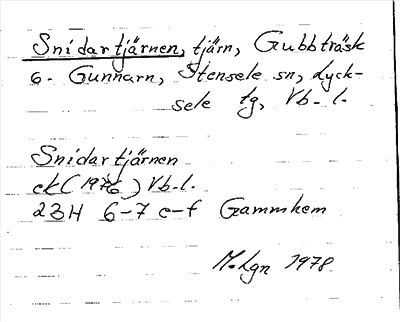 Snidartjärnen, tjärn, Gubbträsk
o. Gunnarn, Stensele sn, Lyck-
sele tg, Vb. l.
Snidartjärnen
ek (1976) Vb. l.
23H 6-7 e-f Gammhem
M. Lgn 1978